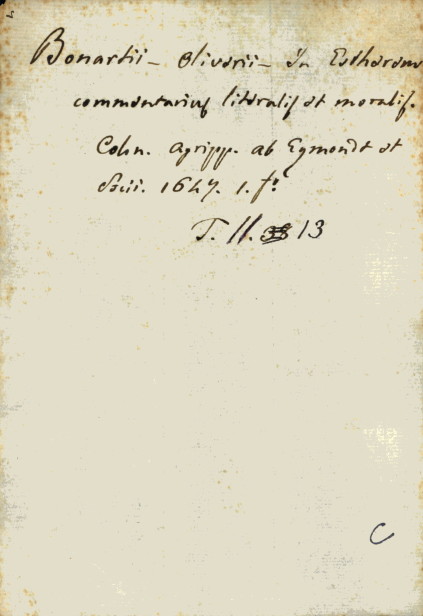 Bonartii - Oliverii - In Estherem
commentarius literalis et moralis.
Coln. Agripp. ab Egmondt et
Socii. 1647. 1. fº
T. 11. 38 13
C